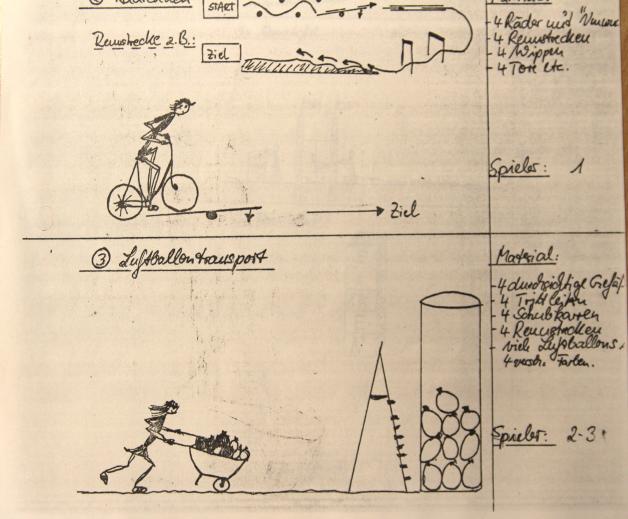 START
4 Räder mit
4 Rennstrecken
4 Wippen
4 Tore etc.
Rennstrecke z.B.:
Ziel
Spieler: 1
Ziel
③ Luftballontransport
Material:
- 4 durchsichtige Gefäß
- 4 Trittleitern
- 4 Schubkarren
- 4 Rennstrecken
- viele Luftballons,
4 versch. Farben.
Spieler: 2-3